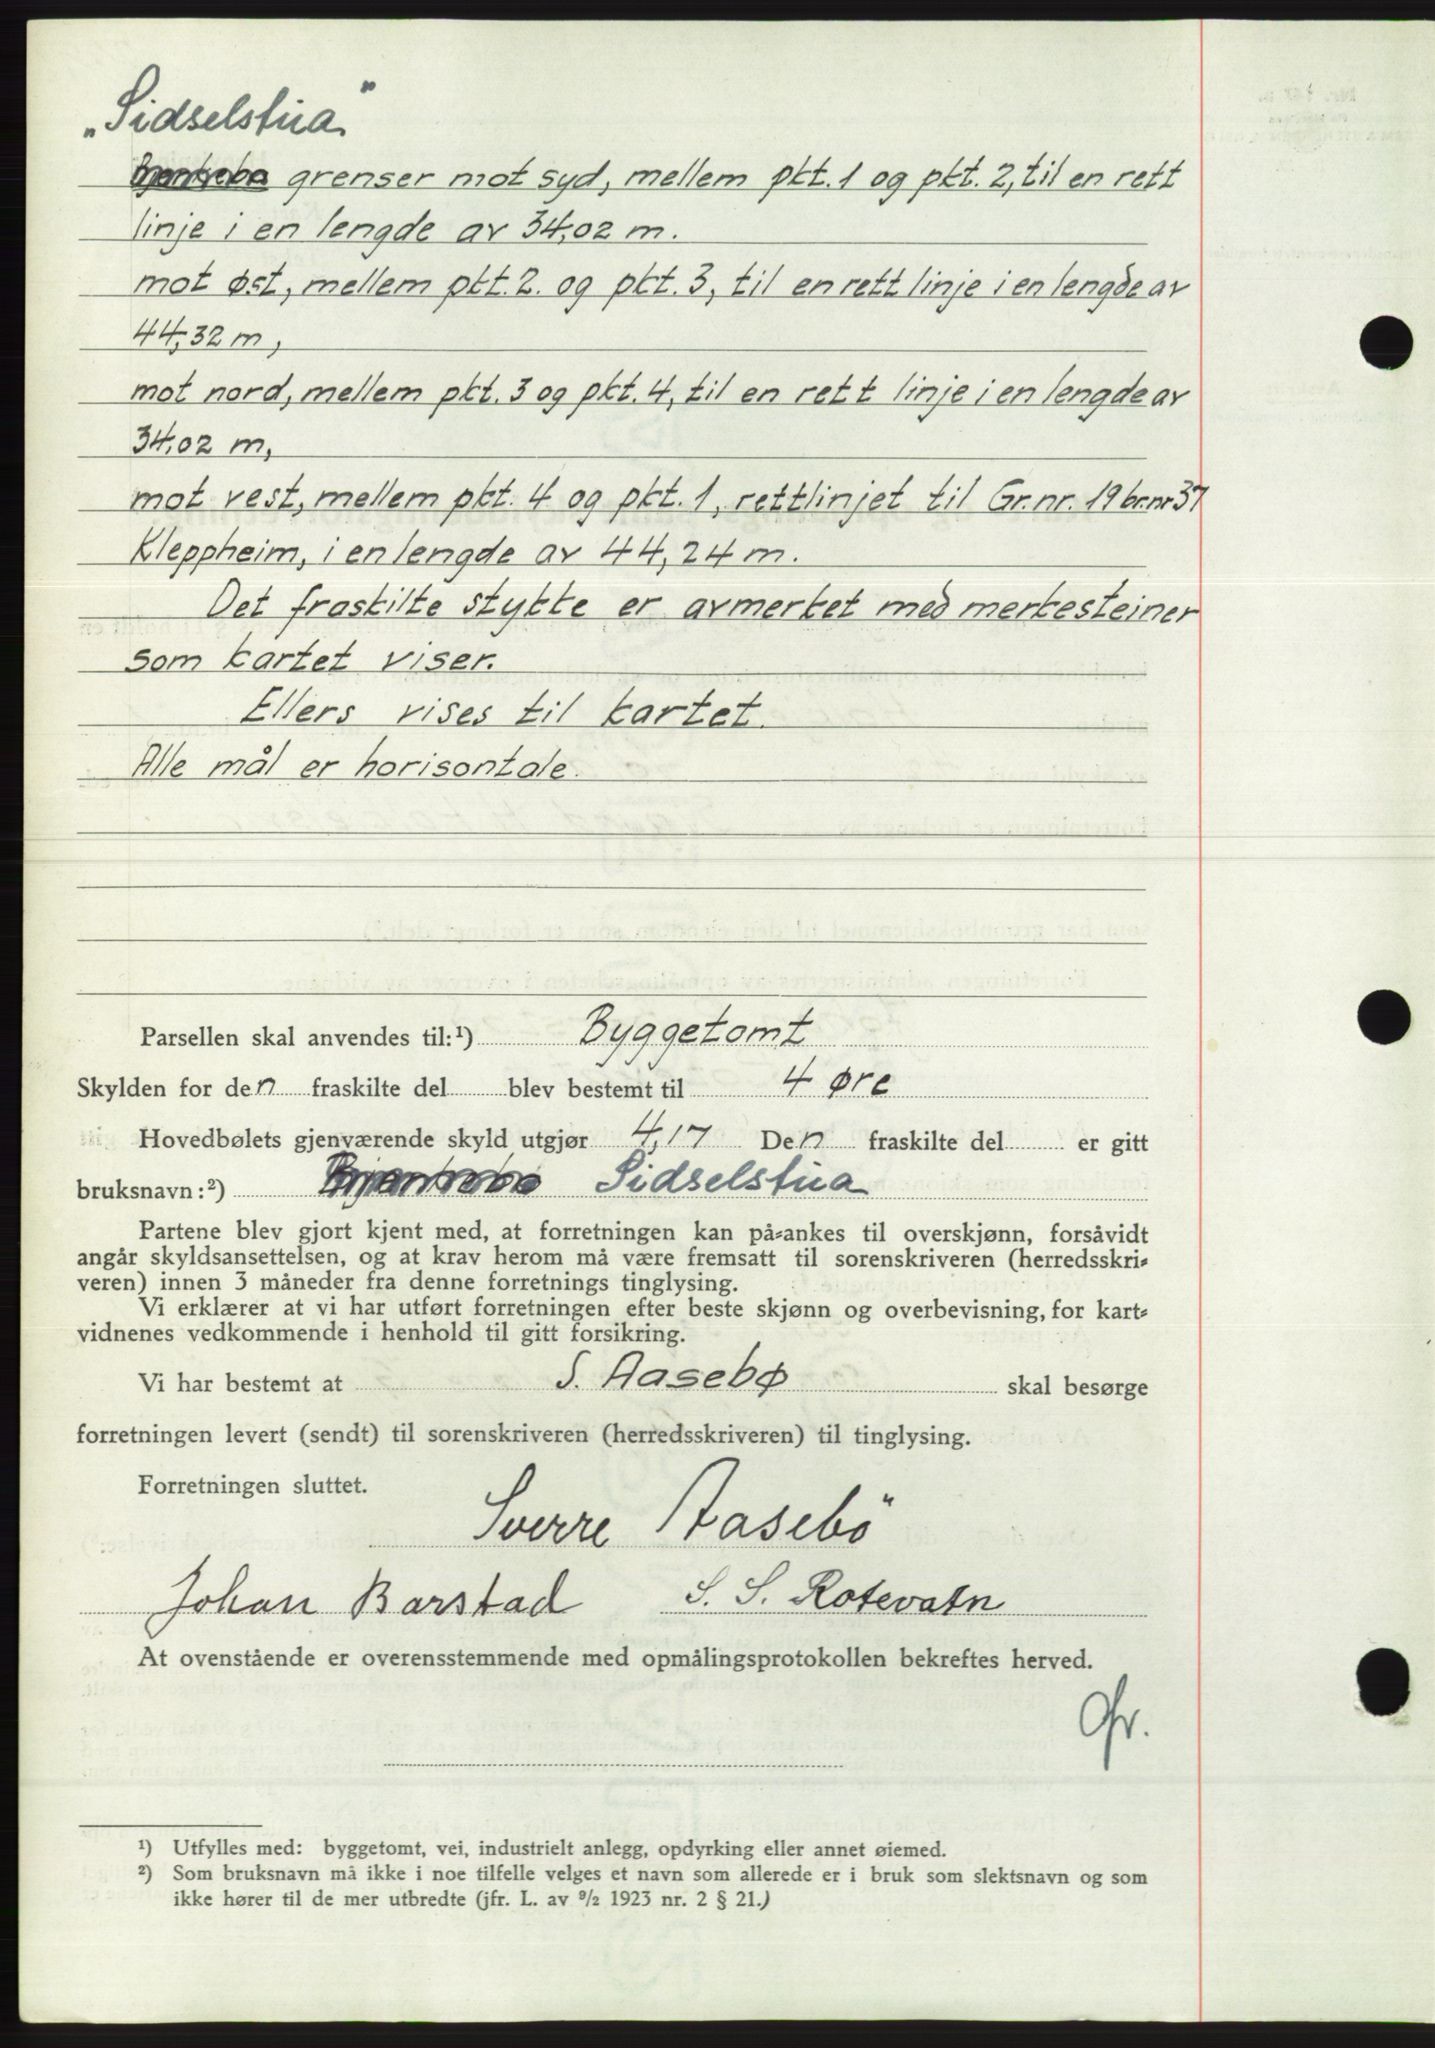 „Sidselstua”
Bjørkebo grenser mot syd, mellem pkt. 1 og pkt. 2, til en rett
linje i en lengde av 34,02 m.
mot øst, mellem pkt. 2. og pkt. 3, til en rett linje i en lengde av
44,32 m,
mot nord, mellem pkt. 3 og pkt. 4, til en rett linje i en lengde av
34,02 m,
mot vest, mellem pkt. 4 og pkt. 1, rettlinjet til Gr.nr. 19 br.nr 37
Kleppheim, i en lengde av 44,24 m.
Det fraskilte stykke er avmerket med merkesteiner
som kartet viser.
Ellers vises til kartet.
Alle mål er horisontale.
Parsellen skal anvendes til:¹) Byggetomt
Skylden for den fraskilte del blev bestemt til 4 øre
Hovedbølets gjenværende skyld utgjør 4,17 Den fraskilte del er gitt
bruksnavn:²) Sidselstua
Partene blev gjort kjent med, at forretningen kan på-ankes til overskjønn, forsåvidt
angår skyldsansettelsen, og at krav herom må være fremsatt til sorenskriveren (herredsskri-
veren) innen 3 måneder fra denne forretnings tinglysing.
Vi erklærer at vi har utført forretningen efter beste skjønn og overbevisning, for kart-
vidnenes vedkommende i henhold til gitt forsikring.
Vi har bestemt at S. Aasebø skal besørge
forretningen levert (sendt) til sorenskriveren (herredsskriveren) til tinglysing.
Forretningen sluttet.
Sverre Aasebö
Johan Barstad S. S. Rotevatn
At ovenstående er overensstemmende med opmålingsprotokollen bekreftes herved.
¹) Utfylles med: byggetomt, vei, industrielt anlegg, opdyrking eller annet øiemed.
²) Som bruksnavn må ikke i noe tilfelle velges et navn som allerede er i bruk som slektsnavn og som
ikke hører til de mer utbredte (jfr. L. av ⁹/₂ 1923 nr. 2 § 21.)